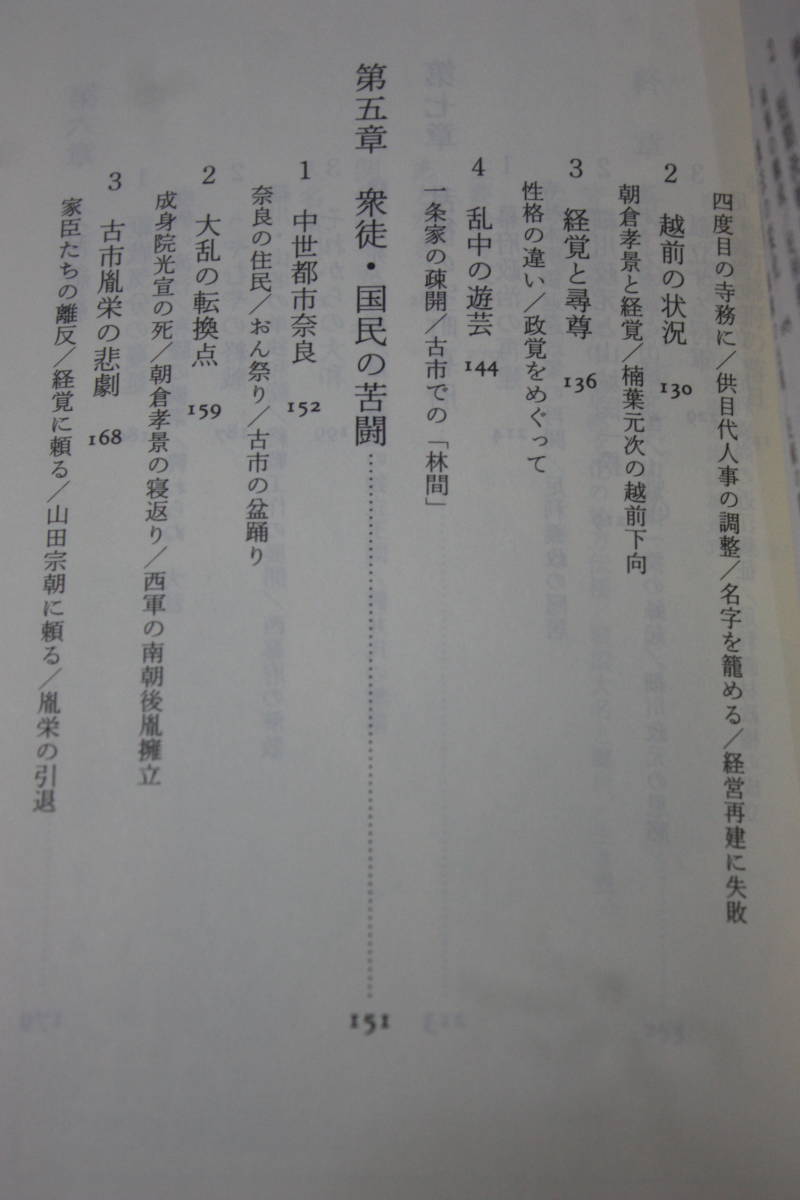 四度目の寺務に/供目代人事の調整/名字を籠める/経営再建に失敗
2 越前の状況 130
朝倉孝景と経覚/楠葉元次の越前下向
3 経覚と尋尊 136
性格の違い/政覚をめぐって
4 乱中の遊芸 144
一条家の疎開/古市での「林間」
第五章 衆徒・国民の苦闘……………………………… 151
1 中世都市奈良 152
奈良の住民/おん祭り/古市の盆踊り
2 大乱の転換点 159
成身院光宣の死/朝倉孝景の寝返り/西軍の南朝後胤擁立
3 古市胤栄の悲劇 168
家臣たちの離反/経覚に頼る/山田宗朝に頼る/胤栄の引退